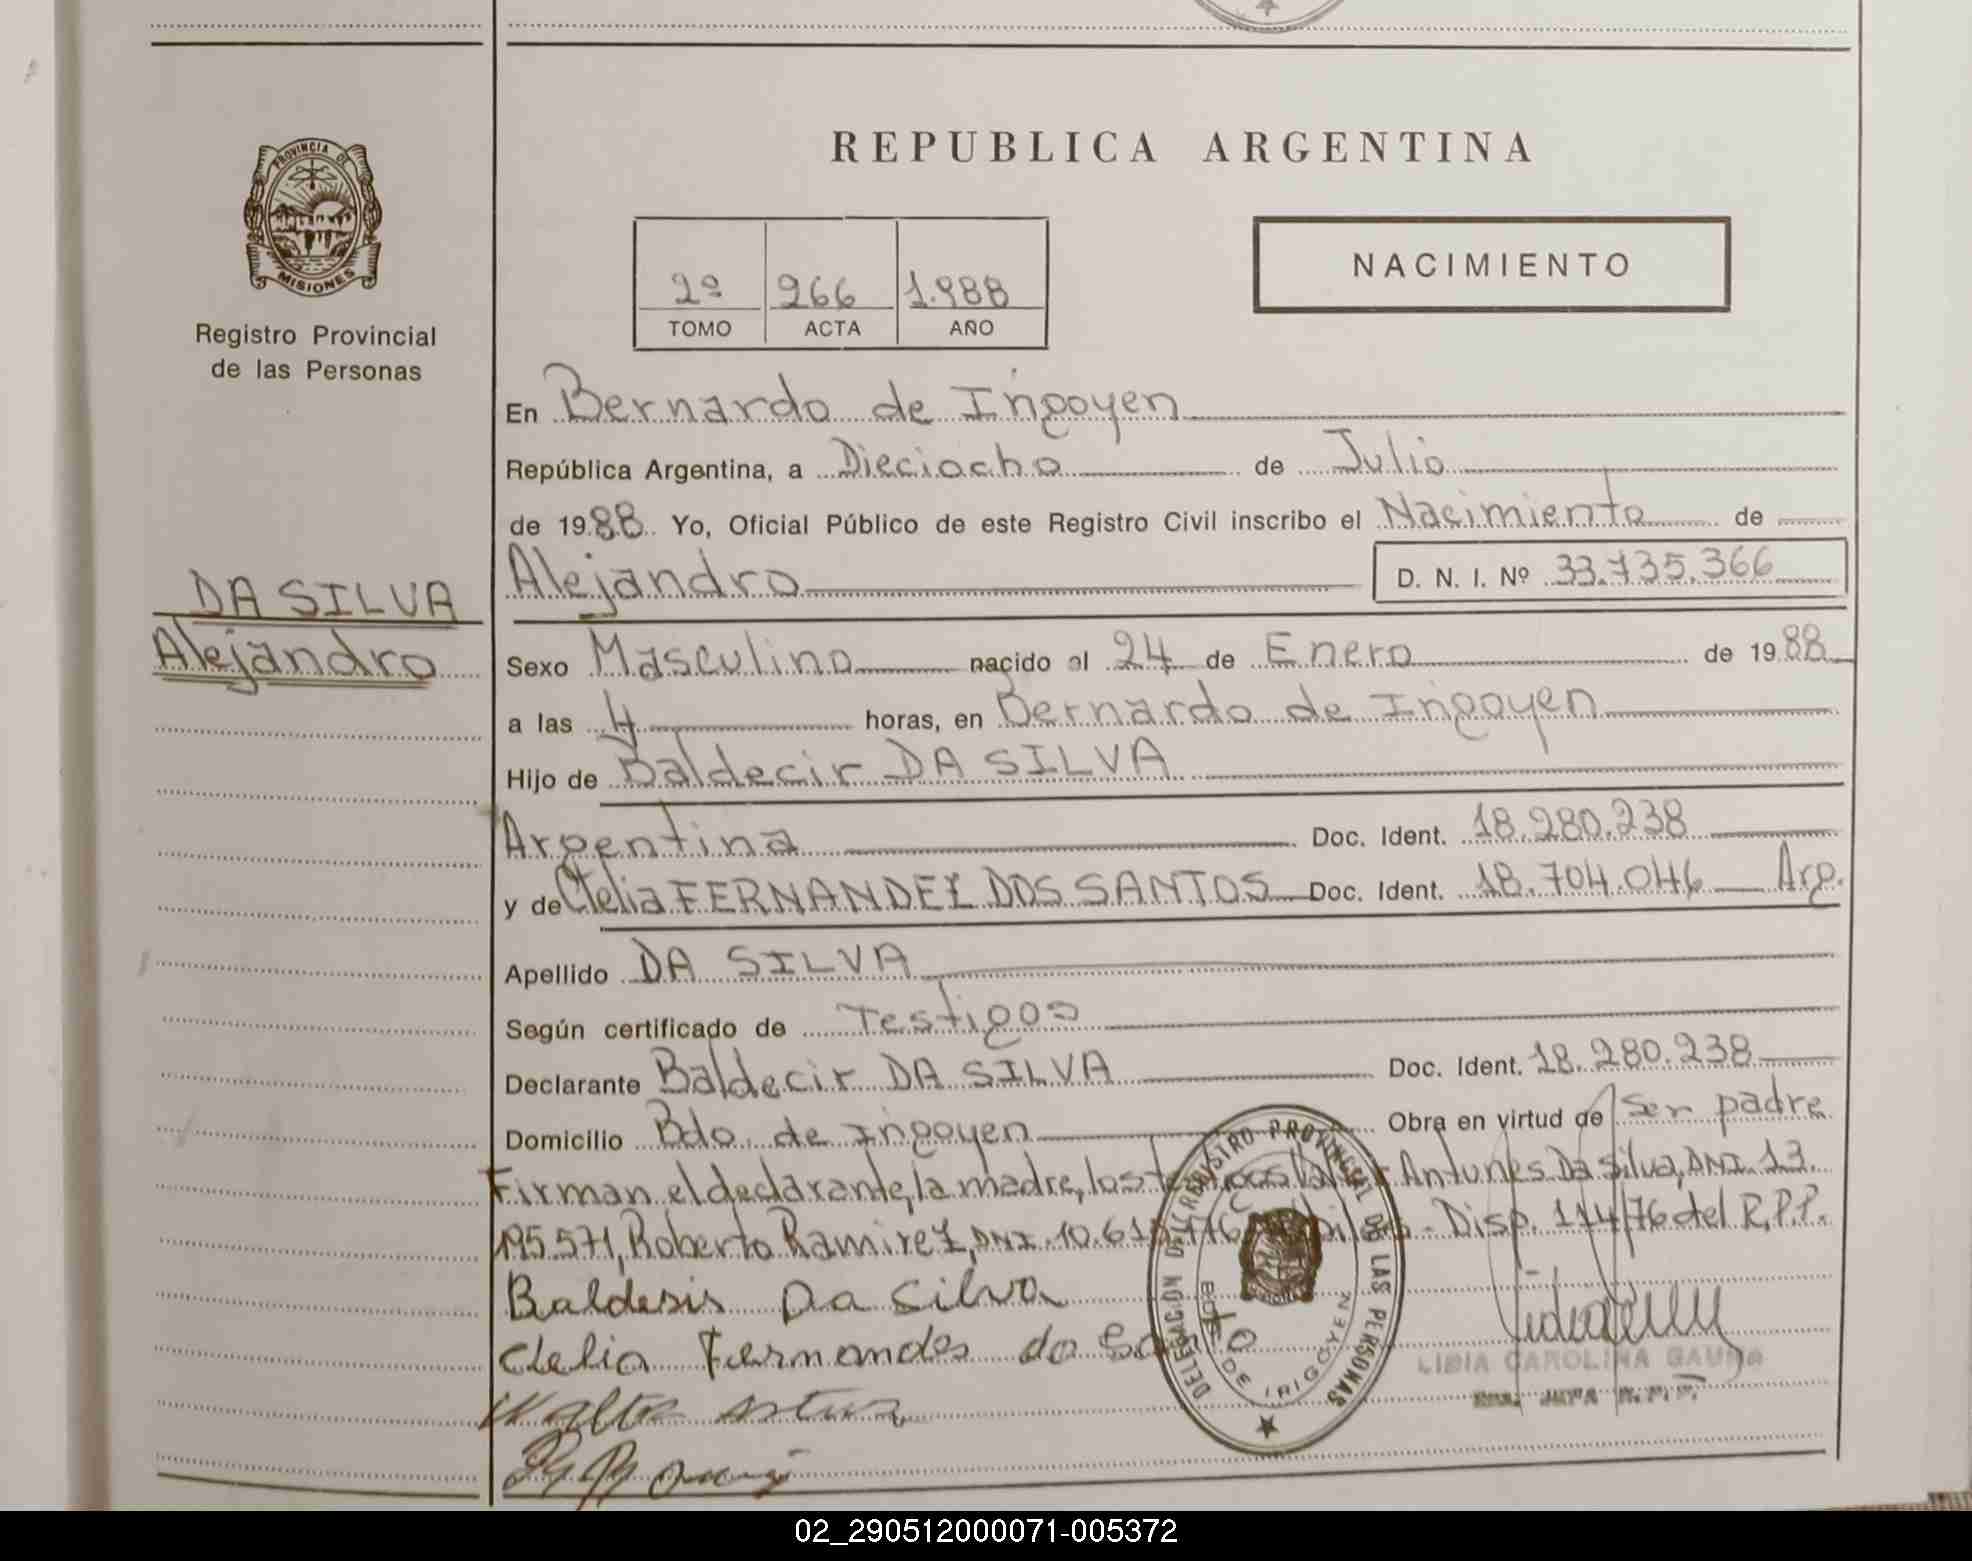 PROVINCIA DE
MISIONES
Registro Provincial
de las Personas
DA SILVA
Alejandro
REPUBLICA ARGENTINA
2º 266 1.988
TOMO ACTA AÑO
NACIMIENTO
En Bernardo de Irigoyen
República Argentina, a Dieciocho de Julio
de 1988 Yo, Oficial Público de este Registro Civil inscribo el Nacimiento de
Alejandro D. N. I. Nº 33.735.366
Sexo Masculino nacido el 24 de Enero de 1988
a las 4 horas, en Bernardo de Irigoyen
Hijo de Baldecir DA SILVA
Argentina Doc. Ident. 18.280.238
y de Clelia FERNANDEZ DOS SANTOS Doc. Ident. 18.704.046 Arg.
Apellido DA SILVA
Según certificado de Testigos
Declarante Baldecir DA SILVA Doc. Ident. 18.280.238
Domicilio Bdo. de Irigoyen Obra en virtud de Ser padre
Firman el declarante, la madre, los testigos Antunes Da Silva, DNI. 13.
195.571, Roberto Ramirez, DNI. 10.61 Disp. 114/76 del R.P.P.
Baldesis Da Silva
Clelia Fernandes do Santo
Walter
DELEGACION DE REGISTRO PROVINCIAL DE LAS PERSONAS
BDO. DE IRIGOYEN
LIBIA CAROLINA GAUNA
02_290512000071-005372